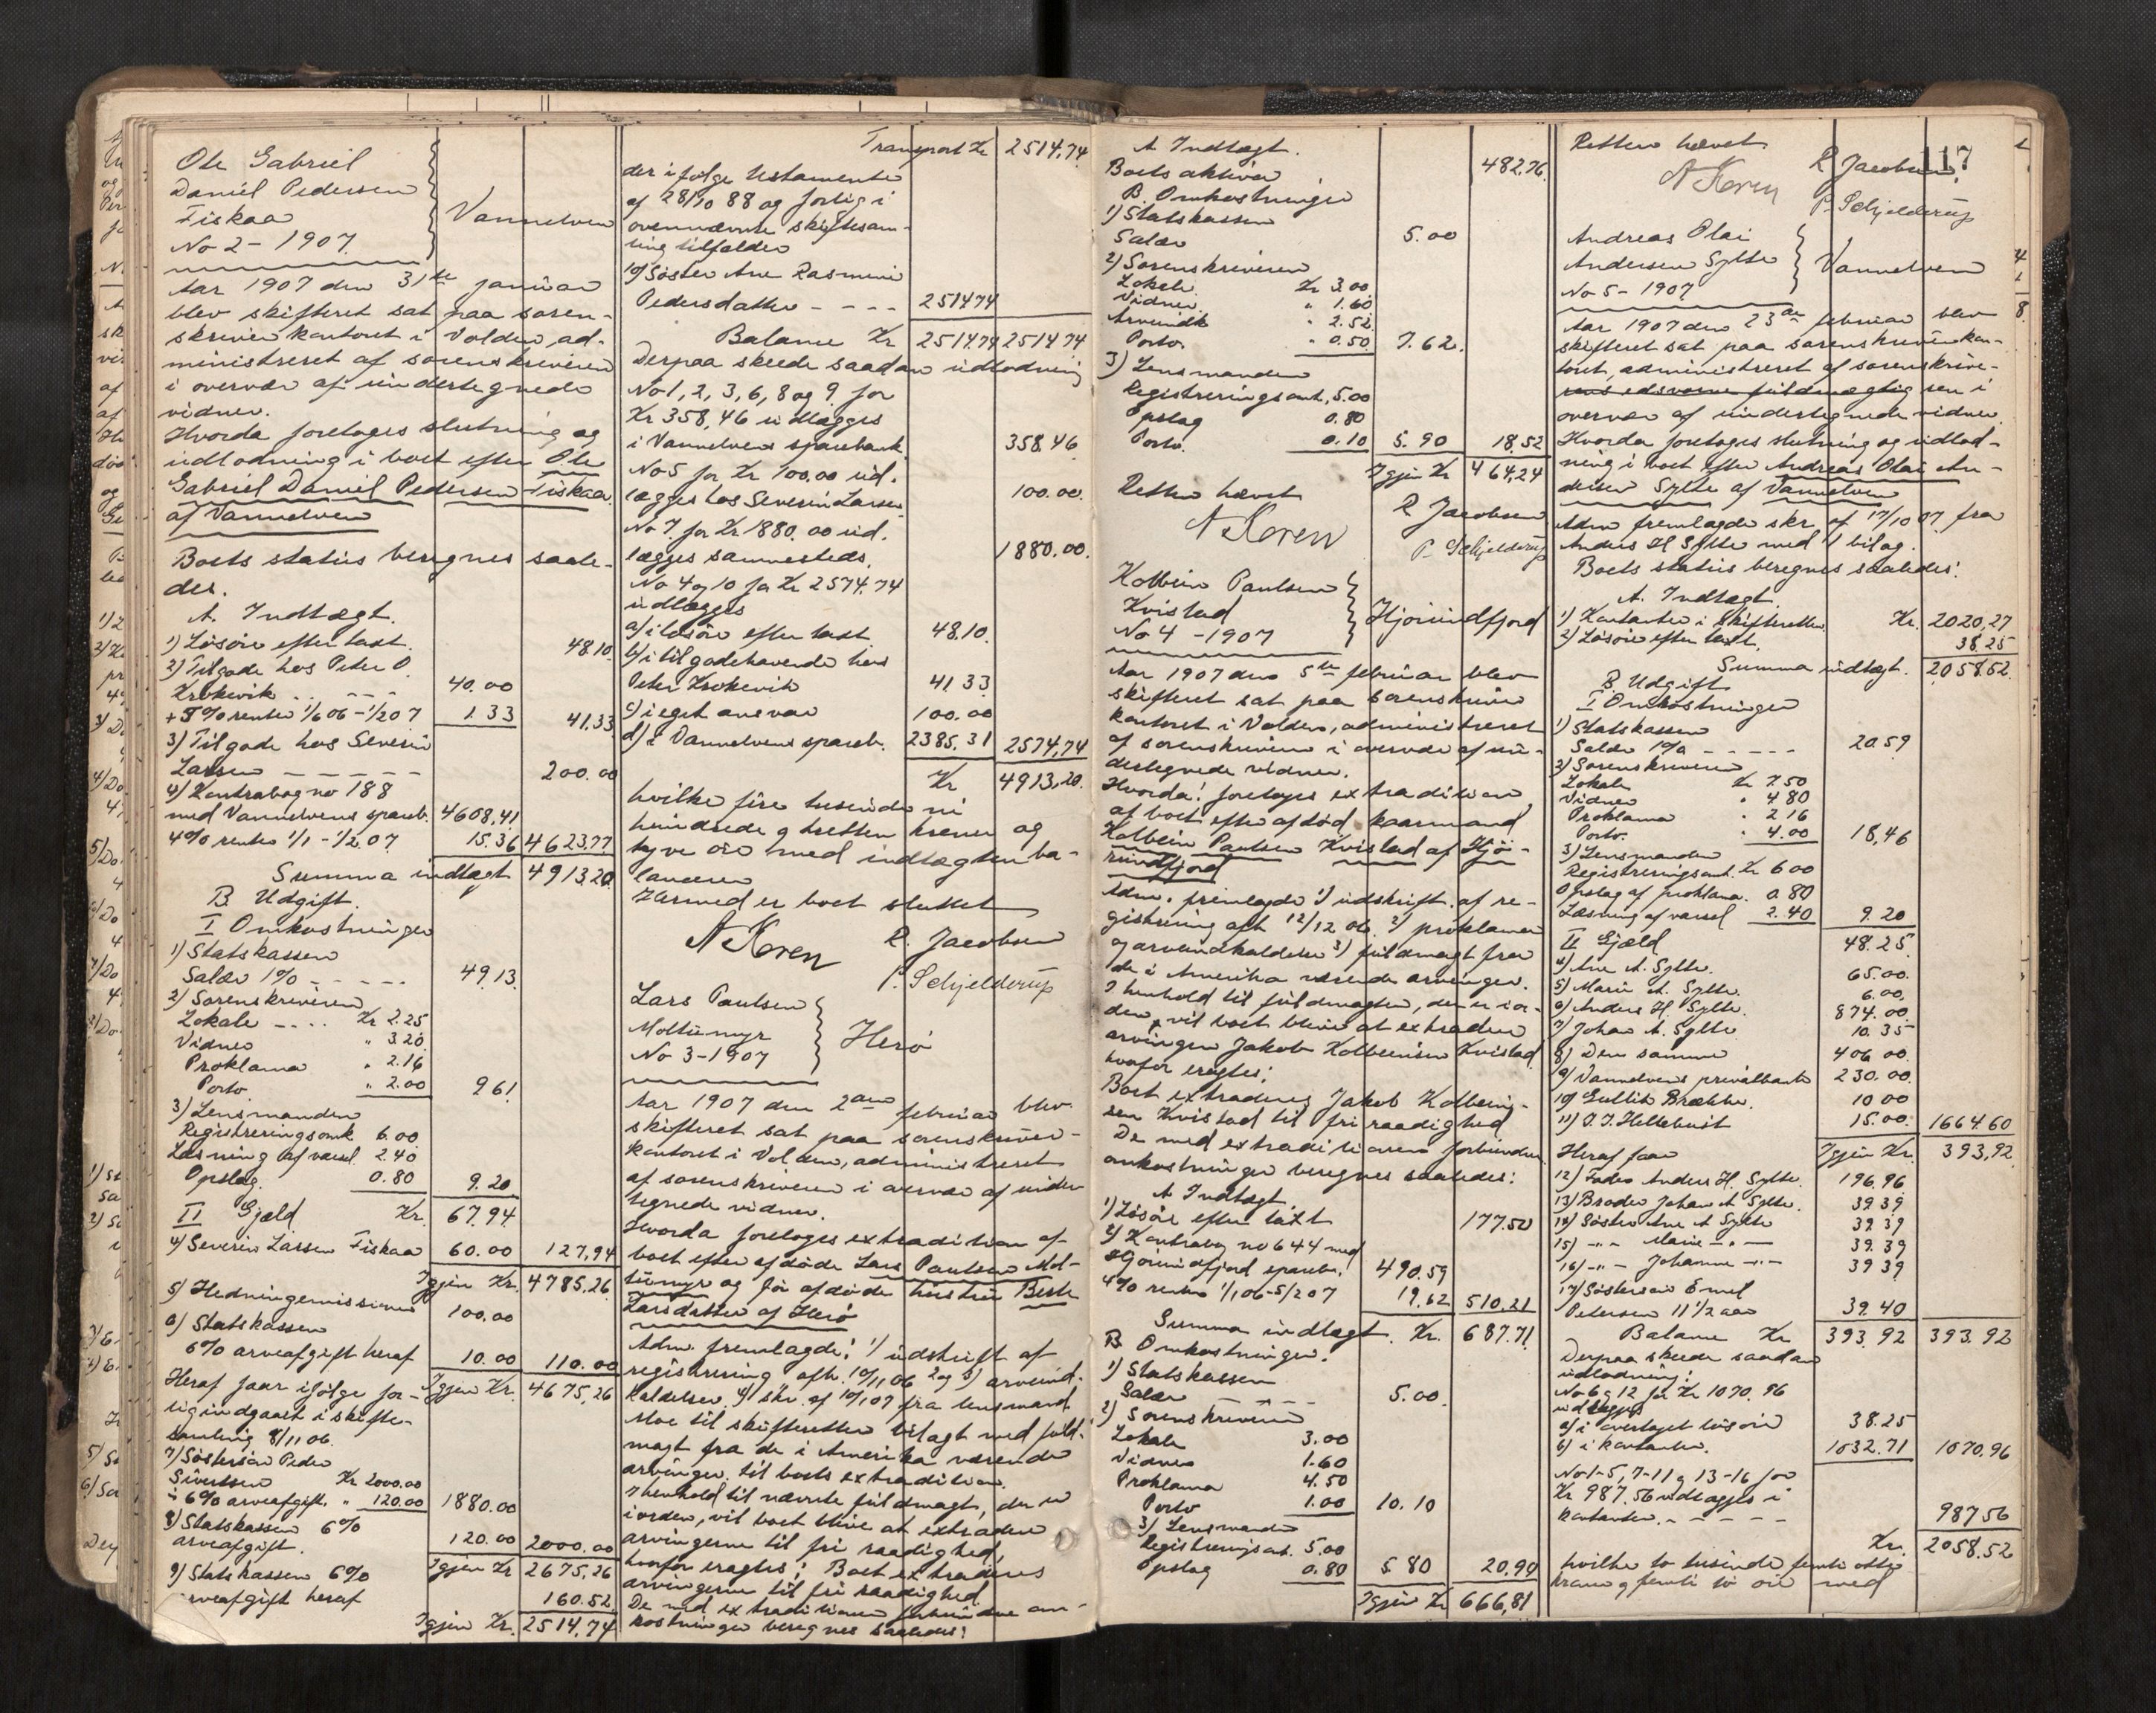 Ole Gabriel
Daniel Pedersen
Fiskaa
No 2 - 1907.
Vannelven
Aar 1907 den 31te januar
blev skifteret sat paa soren-
skriverkontoret i Volden, ad-
ministreret af sorenskriveren
i overvær af undertegnede
vidner.
Hvorda foretoges slutning og
udlodning i boet efter Ole
Gabriel Daniel Pedersen Fiskaa
af Vannelven
Boets status beregnes saale-
des.
A. Indtægt.
1) Løsøre efter taxt. 48.10
2) Tilgode hos Peter O.
Krokevik . . - - - 40.00
+ 5% renter 1/6 06 - 1/2 07 1.33 41.33
3) Tilgode hos Severin
Larsen - - - - - 200.00
4) Kontrabog no 188
med Vannelvens spareb. 4608,41
4% renter 1/1 - 1/2.07. 15.36 4623,77
Summa indtægt 4913.20
B. Udgift.
I Omkostninger
1) Statskassen
Salær 1% - - - - - 49.13.
2) Sorenskriveren
Lokale - . . . Kr 2.25
Vidner " 3.20
Proklama " 2.16
Porto. " 2.00 9.61
3) Lensmanden
Registreringsomk 6.00
Læsning af varsel 2.40
Opslag. 0.80 9.20
II Gjæld Kr. 67.94
4) Severin Larsen Fiskaa 60.00 127,94
Igjen Kr. 4785,26
5) Hedningemissionen 100.00
6) Statskassen
6% arveafgift heraf 10.00 110.00
Igjen Kr. 4675,26
Heraf faar ifølge for-
lig indgaaet i skifte-
samling 8/11 06.
7) Søstersøn Peder
Sivertsen Kr 2000.00
÷ 6% arveafgift. " 120.00 1880.00
8) Statskassen 6%
arveafgift. 120.00 2000.00
Igjen Kr 2675,26
9) Statskassen 6%
arveafgift heraf 160.52
Igjen Kr. 2514,74
Transport Kr 2514,74
der ifølge testamente
af 28/10 88 og forlig i
ovennævnte skiftesam-
ling tilfalder
10) Søster Ane Rasmine
Pedersdatter - - - - 251474
Balance Kr 251474 251474
Derpaa skeede saadan udlodning
No 1, 2, 3, 6, 8 og 9 for
Kr 358,46 udlægges
i Vannelvens sparebank. 358.46
No 5 for Kr 100.00 ud-
lægges hos Severin Larsen. 100.00.
No 7 for Kr 1880.00 ud-
lægges sammesteds. 1880.00.
No 4 og 10 for Kr 2574.74
udlægges
a) i løsøre efter taxt 48.10.
b) i tilgodehavende hos
Peter Krokevik 41.33.
c) i eget ansvar 100.00
d) i Vannelvens spareb. 2385.31 2574,74
Kr 4913,20.
hvilke fire tusinde ni
hundrede og tretten kroner og
tyve øre med indtægten ba-
lancerer
Hermed er boet sluttet
N Koren R. Jacobsen
P. Schjelderup
Lars Paulsen
Moltumyr
No 3 - 1907
Herø
Aar 1907 den 2den februar blev
skifteret sat paa sorenskriver-
kontoret i Volden, administreret
af sorenskriveren i overvær af under-
tegnede vidner.
Hvorda foretoges extradition af
boet efter afdøde Lars Paulsen Mol-
tumyr og før afdøde hustru Berte
Larsdatter af Herø
Adm. fremlagde: 1) udskrift af
registrering afh. 10/11 06 2 og 3) arveind-
kaldelser. 4) skr. af 10/1 07 fra lensmand
Moe til skifteretten bilagt med fuld-
magt fra de i Amerika værende
arvinger til boets extradition.
I henhold til nævnte fuldmagt, der er
i orden, vil boet blive at extradere
arvingerne til fri raadighed,
hvorfor eragtes: Boet extraderes
arvingerne til fri raadighed
De med extraditionen forbundne om-
kostninger beregnes saaledes:
A. Indtægt.
Boets aktiva 482,76.
B. Omkostninger
1) Statskassen
Salær 5.00
2) Sorenskriveren
Lokale Kr 3.00
Vidner. " 1.60
Arveindk " 2.52
Porto. " 0.50 7.62.
3) Lensmanden
Registreringsomk, 5.00
Opslag 0.80
Porto. 0.10 5.90 18.52
Igjen Kr 464,24
Retten hævet
N Koren R Jacobsen
P. Schjelderup
Kolbein Paulsen
Kvistad
No 4 - 1907
Hjørundfjord
Aar 1907 den 5te februar blev
skifteret sat paa sorenskriver-
kontoret i Volden, administreret
af sorenskriveren i overvær af un-
dertegnede vidner.
Hvorda! foretoges extradition
af boet efter afdød kaarmand
Kolbein Paulsen Kvistad af Hjø-
rundfjord
Adm. fremlagde 1) udskrift af re-
gistrering afh 12/12 06. 2) proklama
og arveindkaldelse 3) fuldmagt fra
de i Amerika værende arvinger.
I henhold til fuldmagten, der er i or-
den, vil boet blive at extradere
arvingen Jakob Kolbeinsen Kvistad
hvorfor eragtes:
Boet extraderes Jakob Kolbein-
sen Kvistad til fri raadighed
De med extraditionen forbundne
omkostninger beregnes saaledes:
A Indtægt.
1) Løsøre efter taxt 177.50
2) Kontrabog no 644 med
Hjørundfjord spareb. 490.59
4% renter 1/1 06 - 5/2 07 19.62 510.21
Summa indtægt. Kr. 687.71
B Omkostninger.
1) Statskassen
Salær - - - - 5.00.
2) Sorenskriveren
Lokale 3.00
Vidner 1.60
Proklama 4.50
Porto 1.00 10.10
3) Lensmanden
Registreringsomk. 5.00
Opslag 0.80 5.80 20.90
Igjen Kr 666,81
Retten hævet
117
N Koren R Jacobsen
P. Schjelderup
Andreas Olai
Andersen Sylte
No 5 - 1907
Vannelven
Aar 1907 den 23de februar blev
skifteret sat paa sorenskriverkon-
toret, administreret af sorenskrive-
rens edsvorne fuldmægtig ren i
overvær af undertegnede vidner
Hvorda foretoges slutning og udlod-
ning i boet efter Andreas Olai An-
dersen Sylte af Vannelven
Adm fremlagde skr. af 17/10 07 fra
Anders H Sylte med 1 bilag.
Boets status beregnes saaledes:
A. Indtægt.
1) Kontanter i skifteretten Kr. 2020,27
2) Løsøre efter taxt. 38.25
Summa indtægt. 2058.52
B Udgift
I Omkostninger
1) Statskassen
Salær 1% - - - - - 20.59
2) Sorenskriveren
Lokale Kr 7.50
Vidner " 4.80
Proklama " 2.16
Porto. " 4.00 18,46
3) Lensmanden
Registreringsomk. Kr 6.00
Opslag af proklama. 0.80
Læsning af varsel 2.40 9.20
II Gjæld 48.25
4) Ane A. Sylte. 65.00.
5) Marie A. Sylte. 6.00.
6) Anders H. Sylte. 874.00.
7) Johan A. Sylte 10.35
8) Den samme 406.00.
9) Vannelvens privatbank 230.00.
10) Gullik Brekke. 10.00
11) O. J. Heltebust 15.00. 1664.60
Igjen Kr. 393,92
Heraf faar
12) Fader Anders H. Sylte. 196.96
13) Broder Johan A Sylte. 39.39
14) Søster Ane A Sylte 39.39
15) -"- Marie -"- 39.39
16) -"- Johanne -"- 39.39
17) Søstersøn Emil
Petersen 11 1/2 aar 39.40
Balance Kr 393.92 393.92
Derpaa skeede saadan
udlodning:
No 6 og 12 for Kr 1070.96
udlægges
a) i overtaget løsøre 38.25
b) i kontanter. 1032.71 1070.96
No 1-5, 7-11 og 13-16 for
Kr 987.56 udlægges i
kontanter. - - - - - 987.56
Kr. 2058.52
hvilke to tusinde femti otte
kroner og femti to øre med